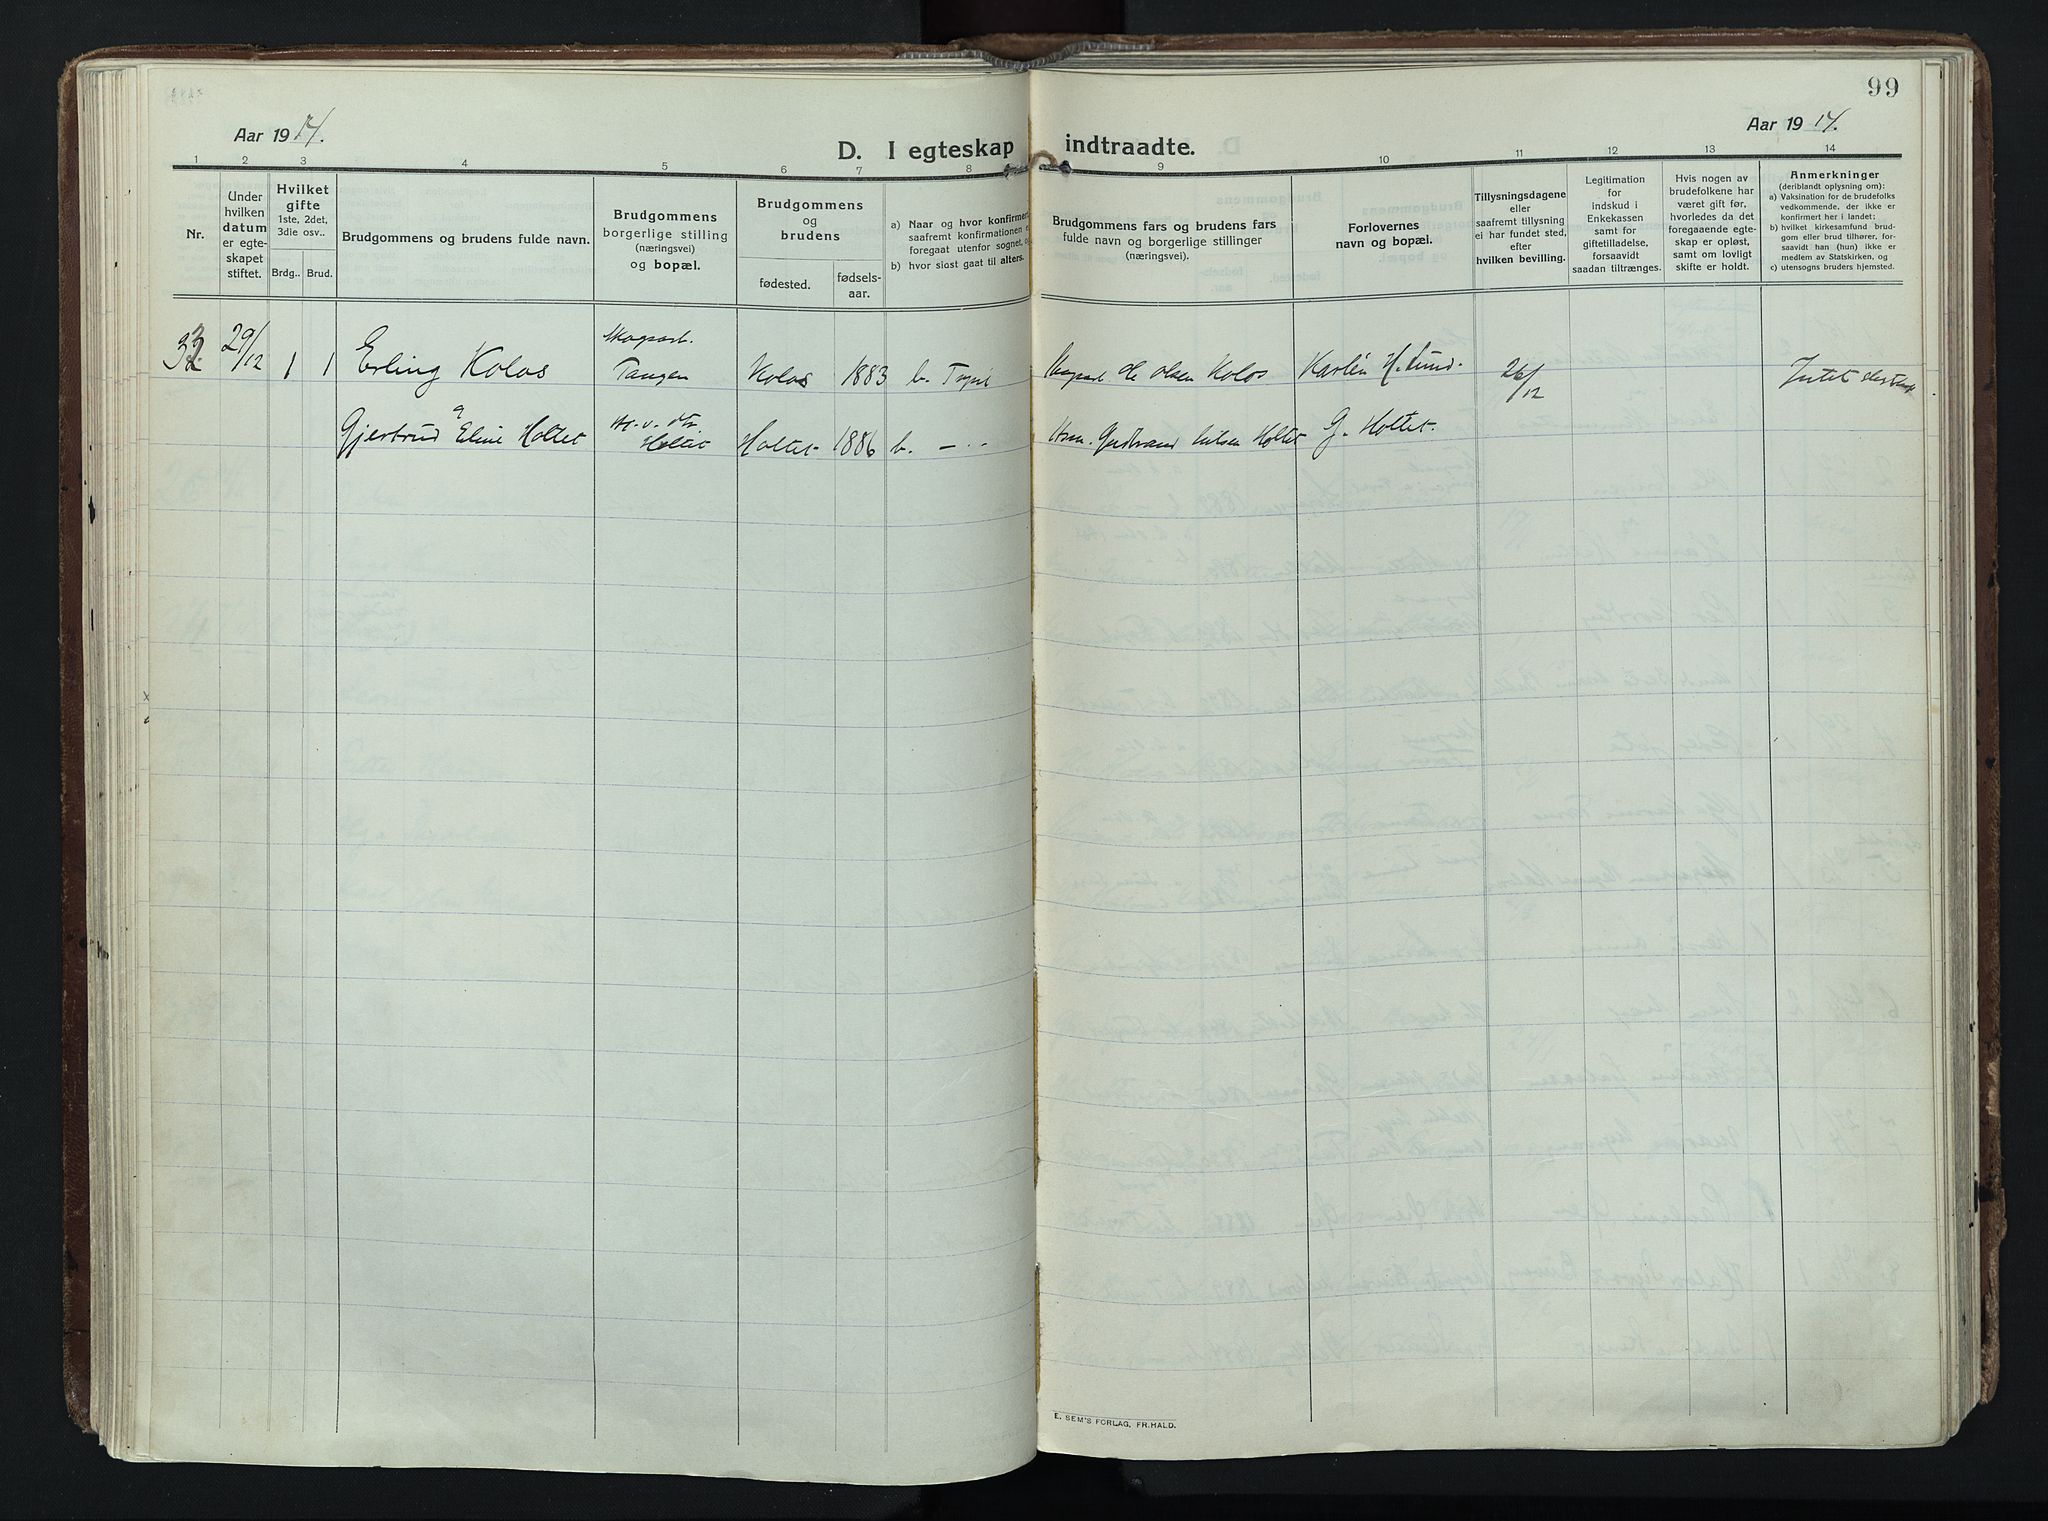 99
Aar 1914.
D. I egteskap indtraadte.
Aar 1914.
1 2 3 4 5 6 7 8 9 10 11 12 13 14
Nr.
Under hvilken datum er egte-skapet stiftet.
Hvilket gifte
1ste, 2det, 3die osv..
Brdg.. Brud.
Brudgommens og brudens fulde navn.
Brudgommens borgerlige stilling (næringsvei) og bopæl.
Brudgommens og brudens
fødested.
fødsels-aar.
a) Naar og hvor konfirmert,
saafremt konfirmationen
foregaat utenfor sognet,
b) hvor sidst gaat til alters.
Brudgommens fars og brudens fars
fulde navn og borgerlige stillinger
(næringsvei).
Forlovernes
navn og bopæl.
Tillysningsdagene
eller
saafremt tillysning
ei har fundet sted,
efter
hvilken bevilling.
Legitimation
for
indskud i
Enkekassen
samt for
giftetilladelse,
forsaavidt
saadan tiltrænges.
Hvis nogen av
brudefolkene har
været gift før,
hvorledes da det
foregaaende egte-
skap er opløst,
samt om lovligt
skifte er holdt.
Anmerkninger
(deriblandt oplysning om):
a) Vaksination for de brudefolks
vedkommende, der ikke er
konfirmert her i landet;
b) hvilket kirkesamfund brud-
gom eller brud tilhører, for-
saavidt han (hun) ikke er
medlem av Statskirken, og
c) utensogns bruders hjemsted.
29/12 1 1 Erling Kolos Tangen Kolos 1883 b. Olsen Kolos Karlén H. Lund. 26/12 Intet
og
Gjertrud Eline Holtet Holtet Holtet 1886 b. — Holtet G. Holtet.
E. SEM'S FORLAG, FR.HALD.